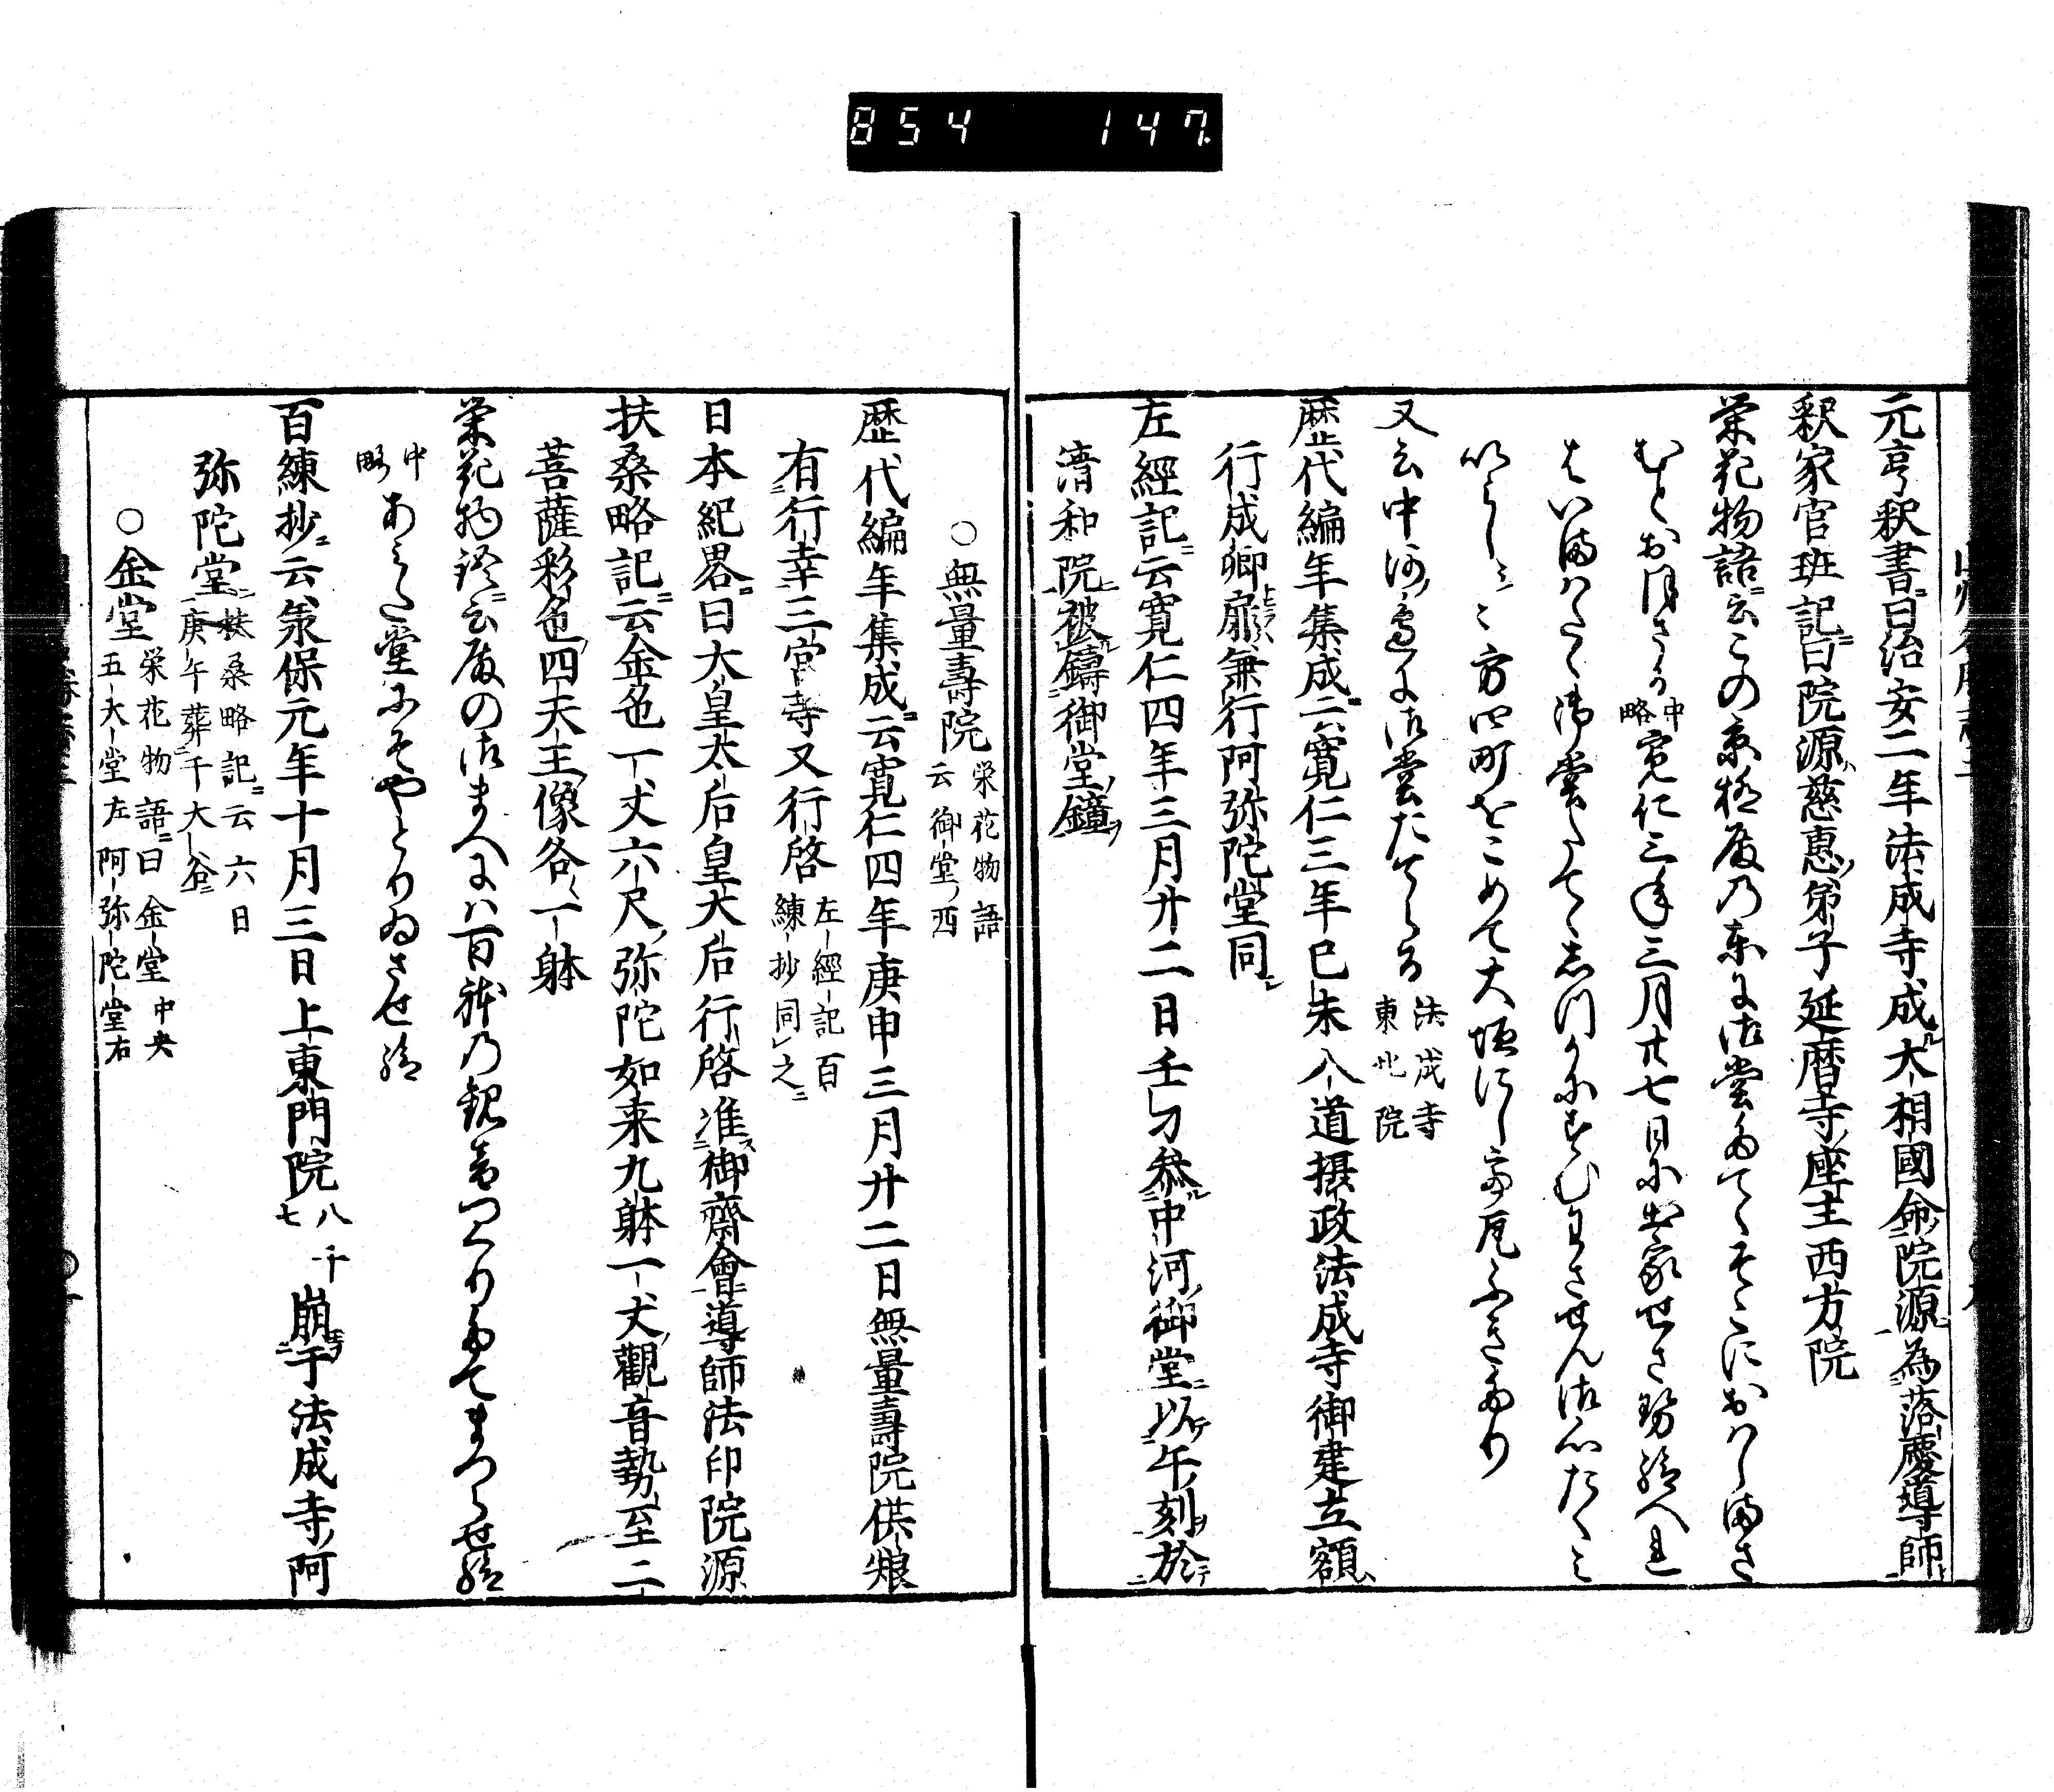 854 147
元亨釈書曰治安二年法成寺成大相國命院源為落慶導師
釈家官班記曰院源慈惠弟子延暦寺座主西方院
栄花物語云この京極殿の東に御堂たてゝそこにおはしまさ
むとおほさる中略寛仁三年三月廿七日に出家せさせ給へれ
はいまはたゝ御堂たてゝ
方四町をこめて大垣にして瓦ふきたり
又云中河邊に御堂たてらる法成寺東北院
歴代編年集成云寛仁三年已未入道摂政法成寺御建立額
行成卿扉兼行阿弥陀堂同
左經記云寛仁四年三月廿二日壬刁参中河御堂以午刻於
清和院被鑄御堂鐘
○無量壽院栄花物語云御堂西
歴代編年集成云寛仁四年庚申三月廿二日無量壽院供粮
有行幸三宮寺又行啓左經記百練抄同之
日本紀畧曰大皇太后皇大后行啓准御齋會導師法印院源
扶桑略記云金色一丈六尺弥陀如来九躰一丈觀音勢至二
菩薩彩色四天王像各一躰
栄花物語云殿の御まへには百躰の観音つくりたてまつらせ給
中略あみた堂にそやとりゐさせ給
百練抄云承保元年十月三日上東門院八十七崩于法成寺阿
弥陀堂扶桑略記云六日庚午葬于大谷
○金堂栄花物語曰金堂中央五大堂左阿弥陀堂右